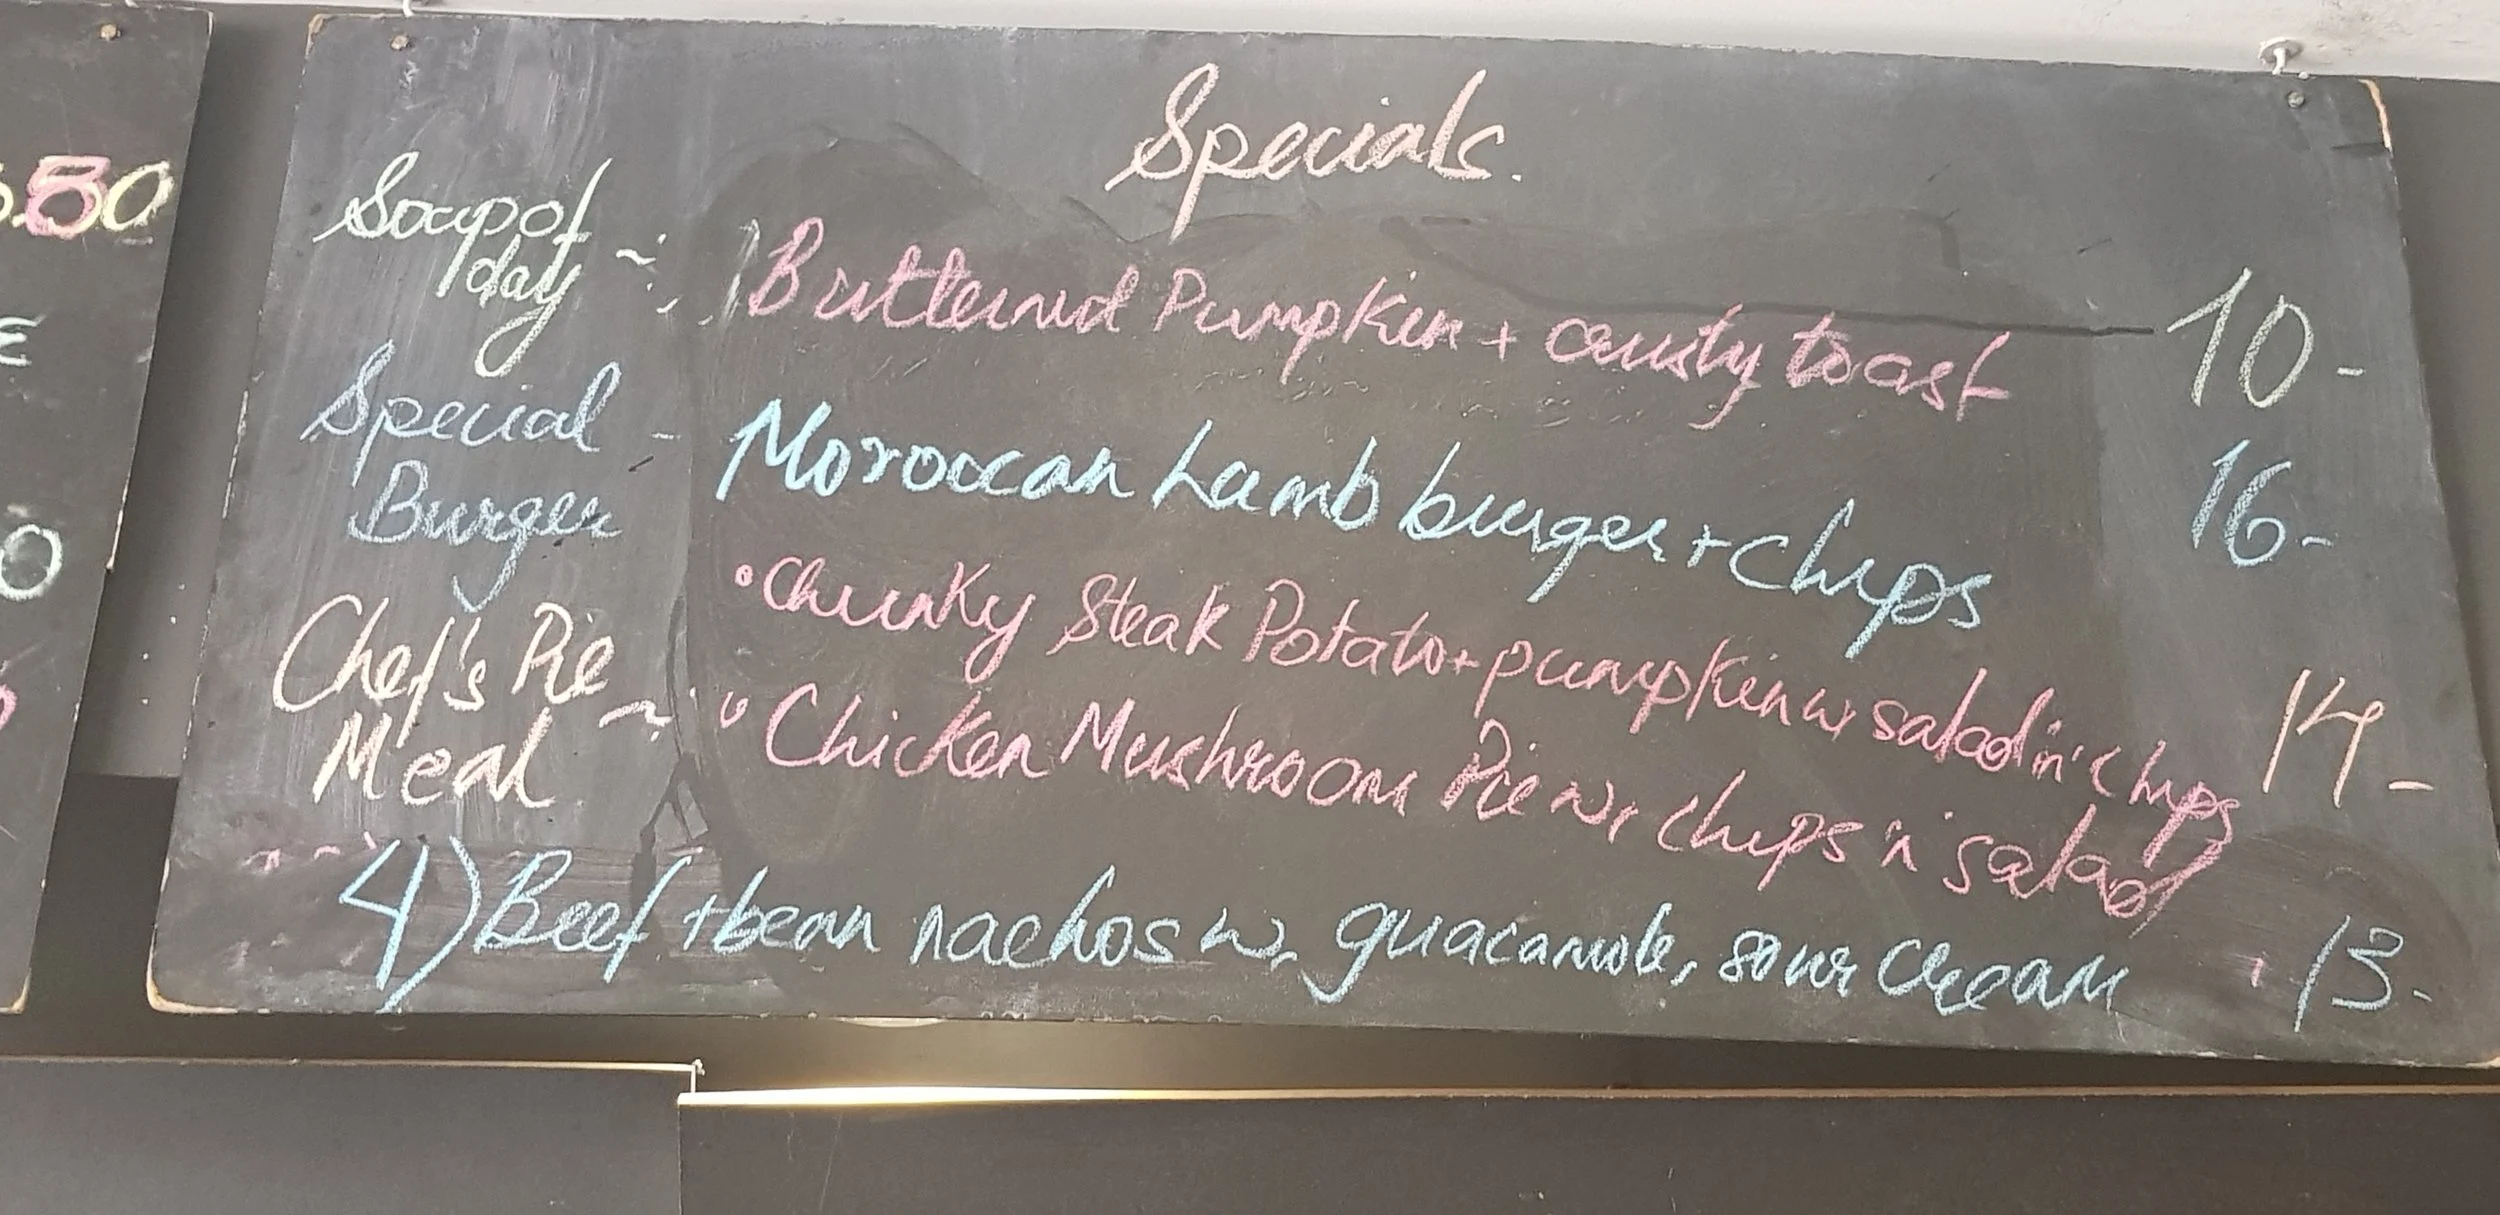 .50
E
0
Specials.
Soup of
1day ~
Butternut Pumpkin + crusty toast 10-
Special -
Burger
Moroccan Lamb burger + chips 16-
Chef's Pie
Meal ~
• Chunky Steak Potato + pumpkin w, salad 'n' chips 14-
• Chicken Mushroom Pie w, chips 'n' salad
4) Beef + bean nachos w, guacamole, sour cream 13-